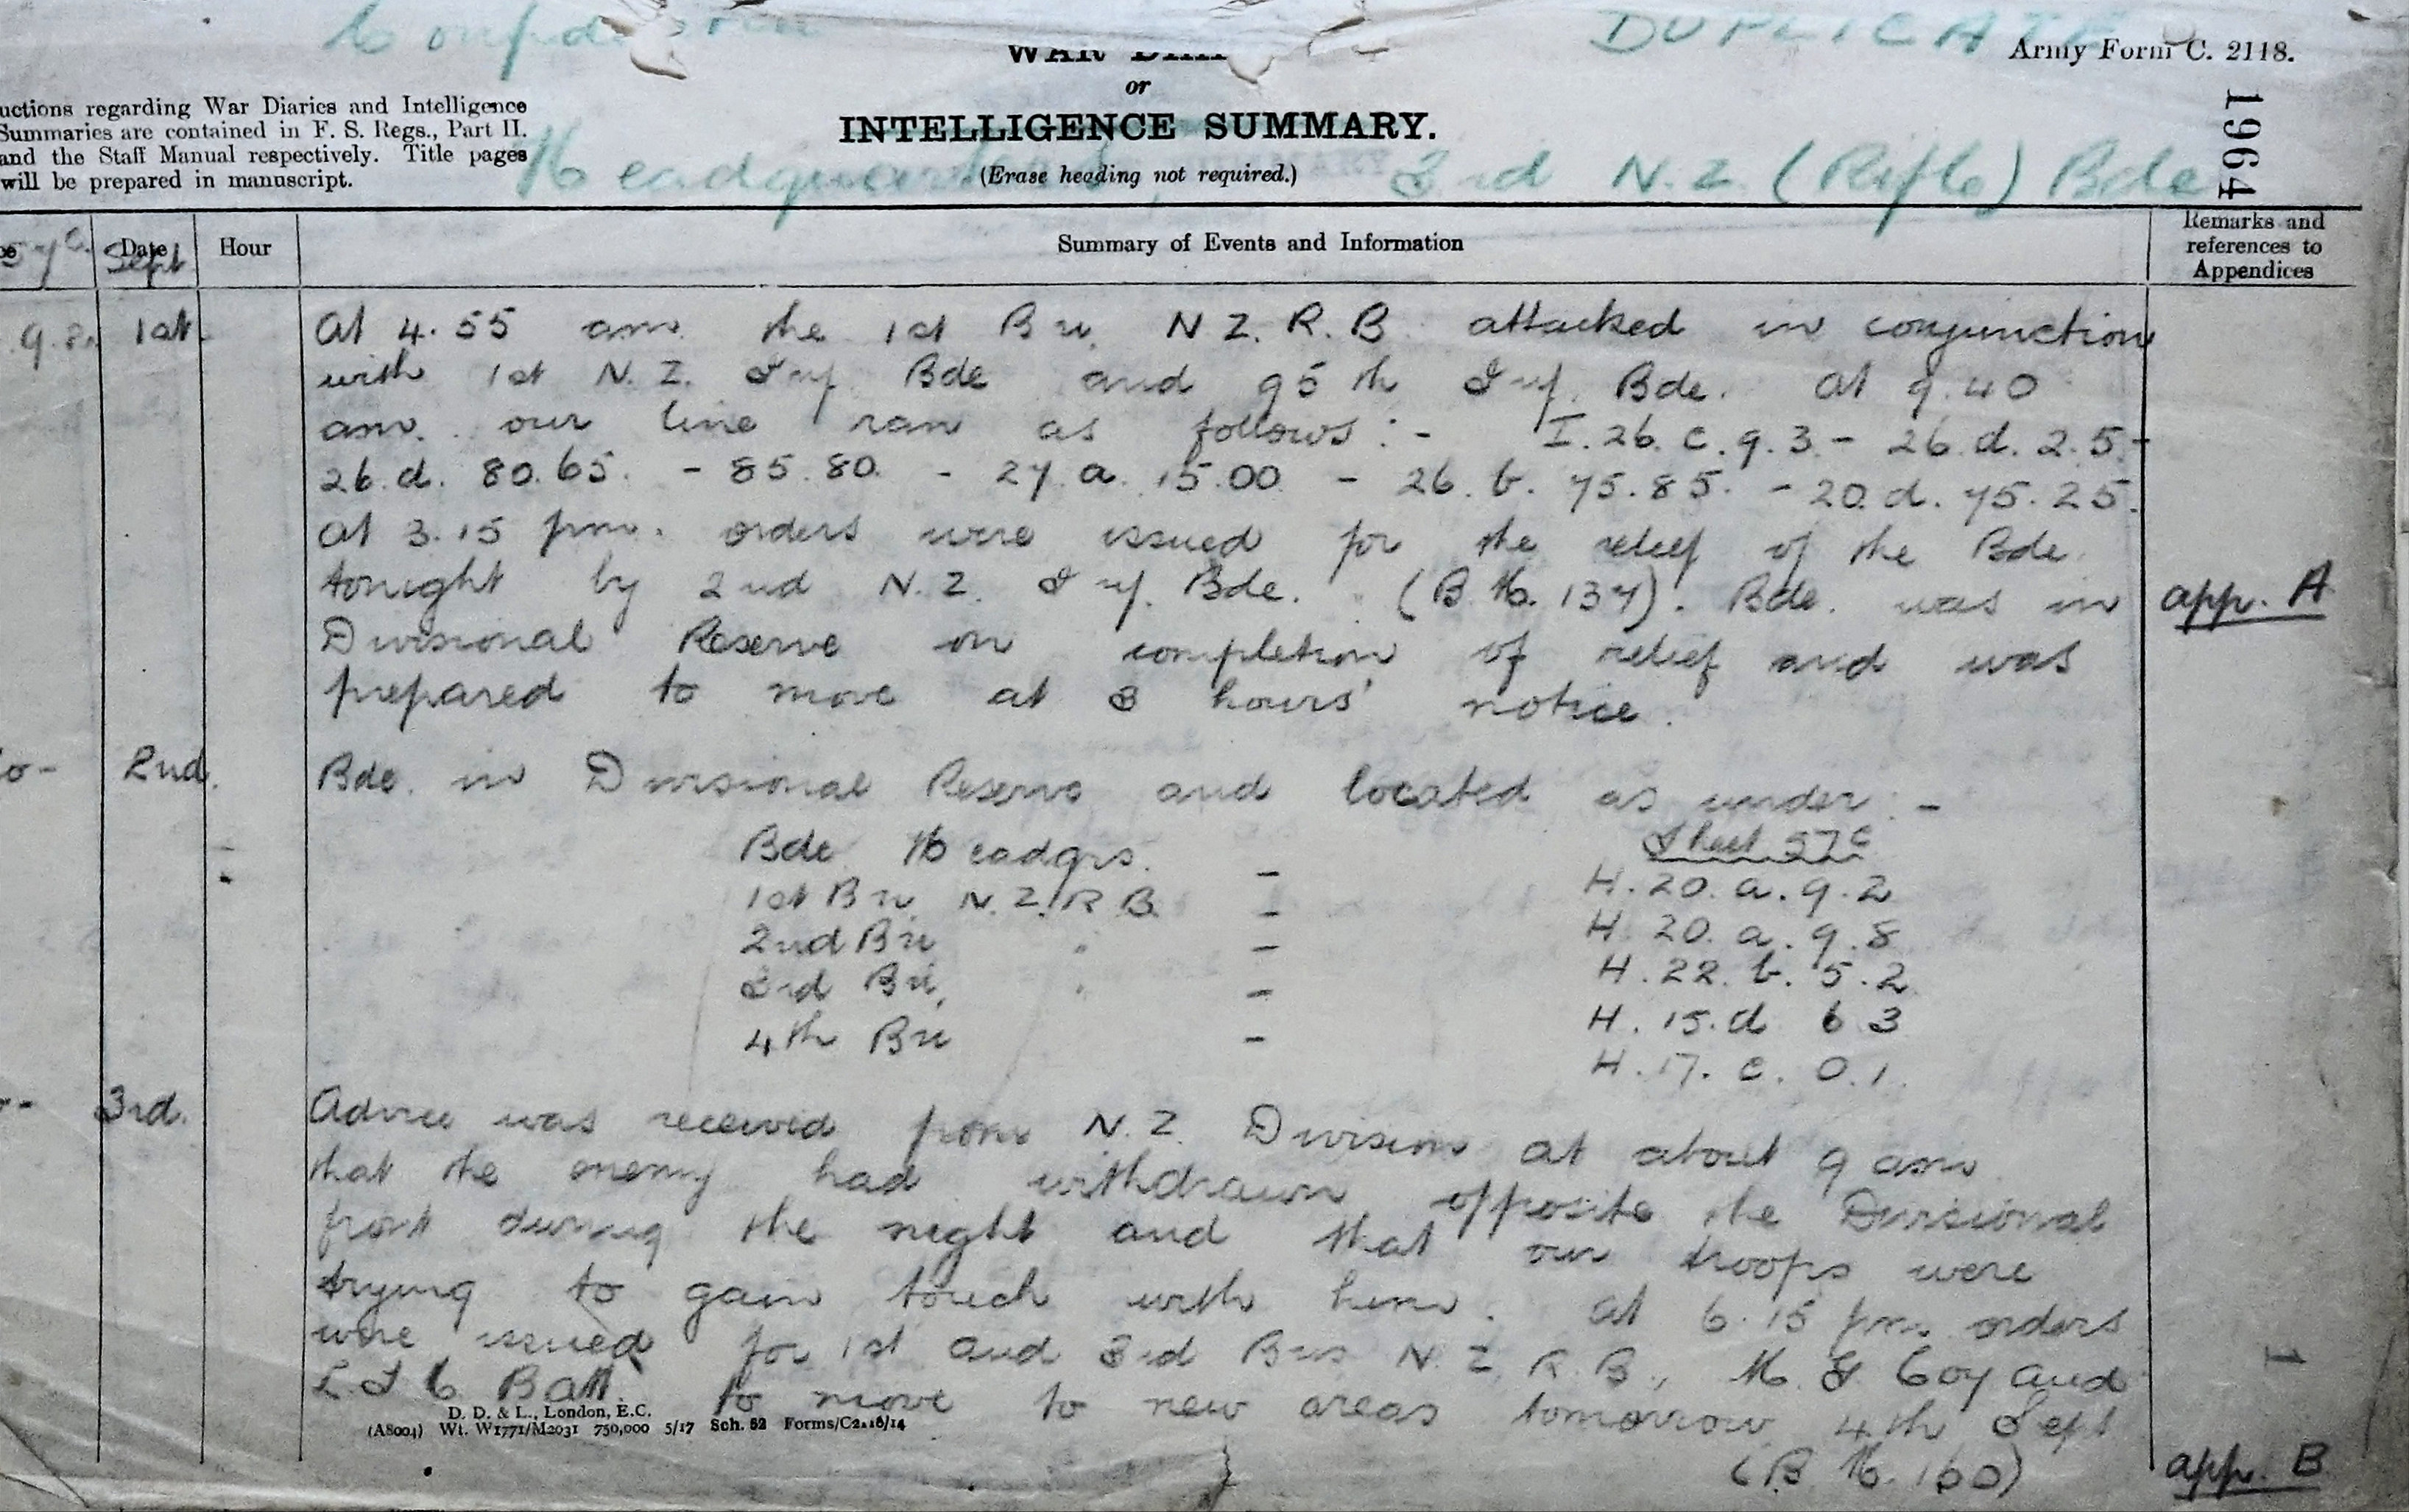 DUPLICATE
Army Form C. 2118.
WAR
or
INTELLIGENCE SUMMARY.
(Erase heading not required.)
uctions regarding War Diaries and Intelligence
Summaries are contained in F. S. Regs., Part II.
and the Staff Manual respectively. Title pages
will be prepared in manuscript.
Headquarters, 3rd N.Z. (Rifle) Bde
1964
Date Hour Summary of Events and Information Remarks and references to Appendices
Sept
1st. At 4.55 am. the 1st Bn. N Z. R. B. attacked in conjunction
with 1st N. Z. Inf. Bde and 95th Inf. Bde. At 9.40
am. our line ran as follows :- I. 26. c. 9. 3. - 26. d. 2. 5. -
26. d. 80. 65. - 85. 80. - 27. a. 15. 00 - 26. b. 75. 85. - 20. d. 75. 25.
At 3.15 pm. orders were issued for the relief of the Bde
tonight by 2nd N. Z. Inf. Bde. (B H. 137). Bde. was in app. A
Divisional Reserve on completion of relief and was
prepared to move at 3 hours' notice.
2nd. Bde. in Divisional Reserve and located as under :-
Sheet 57C
Bde Headqrs. - H. 20. a. 9. 2
1st Bn. N. Z. R B. - H. 20. a. 9. 8
2nd Bn " - H. 22. b. 5. 2
3rd Bn, " - H. 15. d 6 3
4th Bn - H. 17. c. 0. 1.
3rd. Advice was received from N. Z. Division at about 9 am
that the enemy had withdrawn opposite the Divisional
front during the night and that our troops were
trying to gain touch with him. At 6.15 pm. orders
were issued for 1st and 3rd Bns N. Z R. B., M. G Coy and
L T M Batt. to move to new areas tomorrow 4th Sept
(B H. 160) app. B
D. D. & L., London, E.C.
(A8004) Wt. W1771/M2031 750,000 5/17 Sch. 52 Forms/C2118/14
1